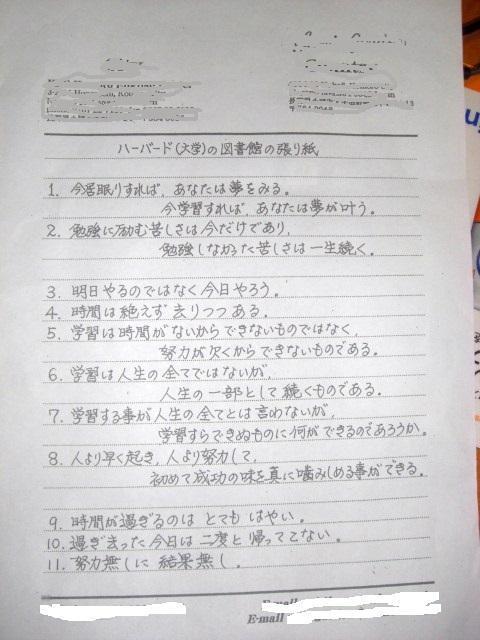 ハーバード(大学)の図書館の張り紙
1. 今居眠りすれば、あなたは夢をみる。
今学習すれば、あなたは夢が叶う。
2. 勉強に励む苦しさは今だけであり、
勉強しなかった苦しさは一生続く。
3. 明日やるのではなく今日やろう。
4. 時間は絶えず去りつつある。
5. 学習は時間がないからできないものではなく、
努力が欠くからできないものである。
6. 学習は人生の全てではないが、
人生の一部として続くものである。
7. 学習する事が人生の全てとは言わないが、
学習すらできぬものに何ができるのであろうか。
8. 人より早く起き、人より努力して、
初めて成功の味を真に噛みしめる事ができる。
9. 時間が過ぎるのは とても はやい。
10. 過ぎ去った今日は 二度と帰ってこない。
11. 努力無しに 結果無し.
E-mail
E-mail